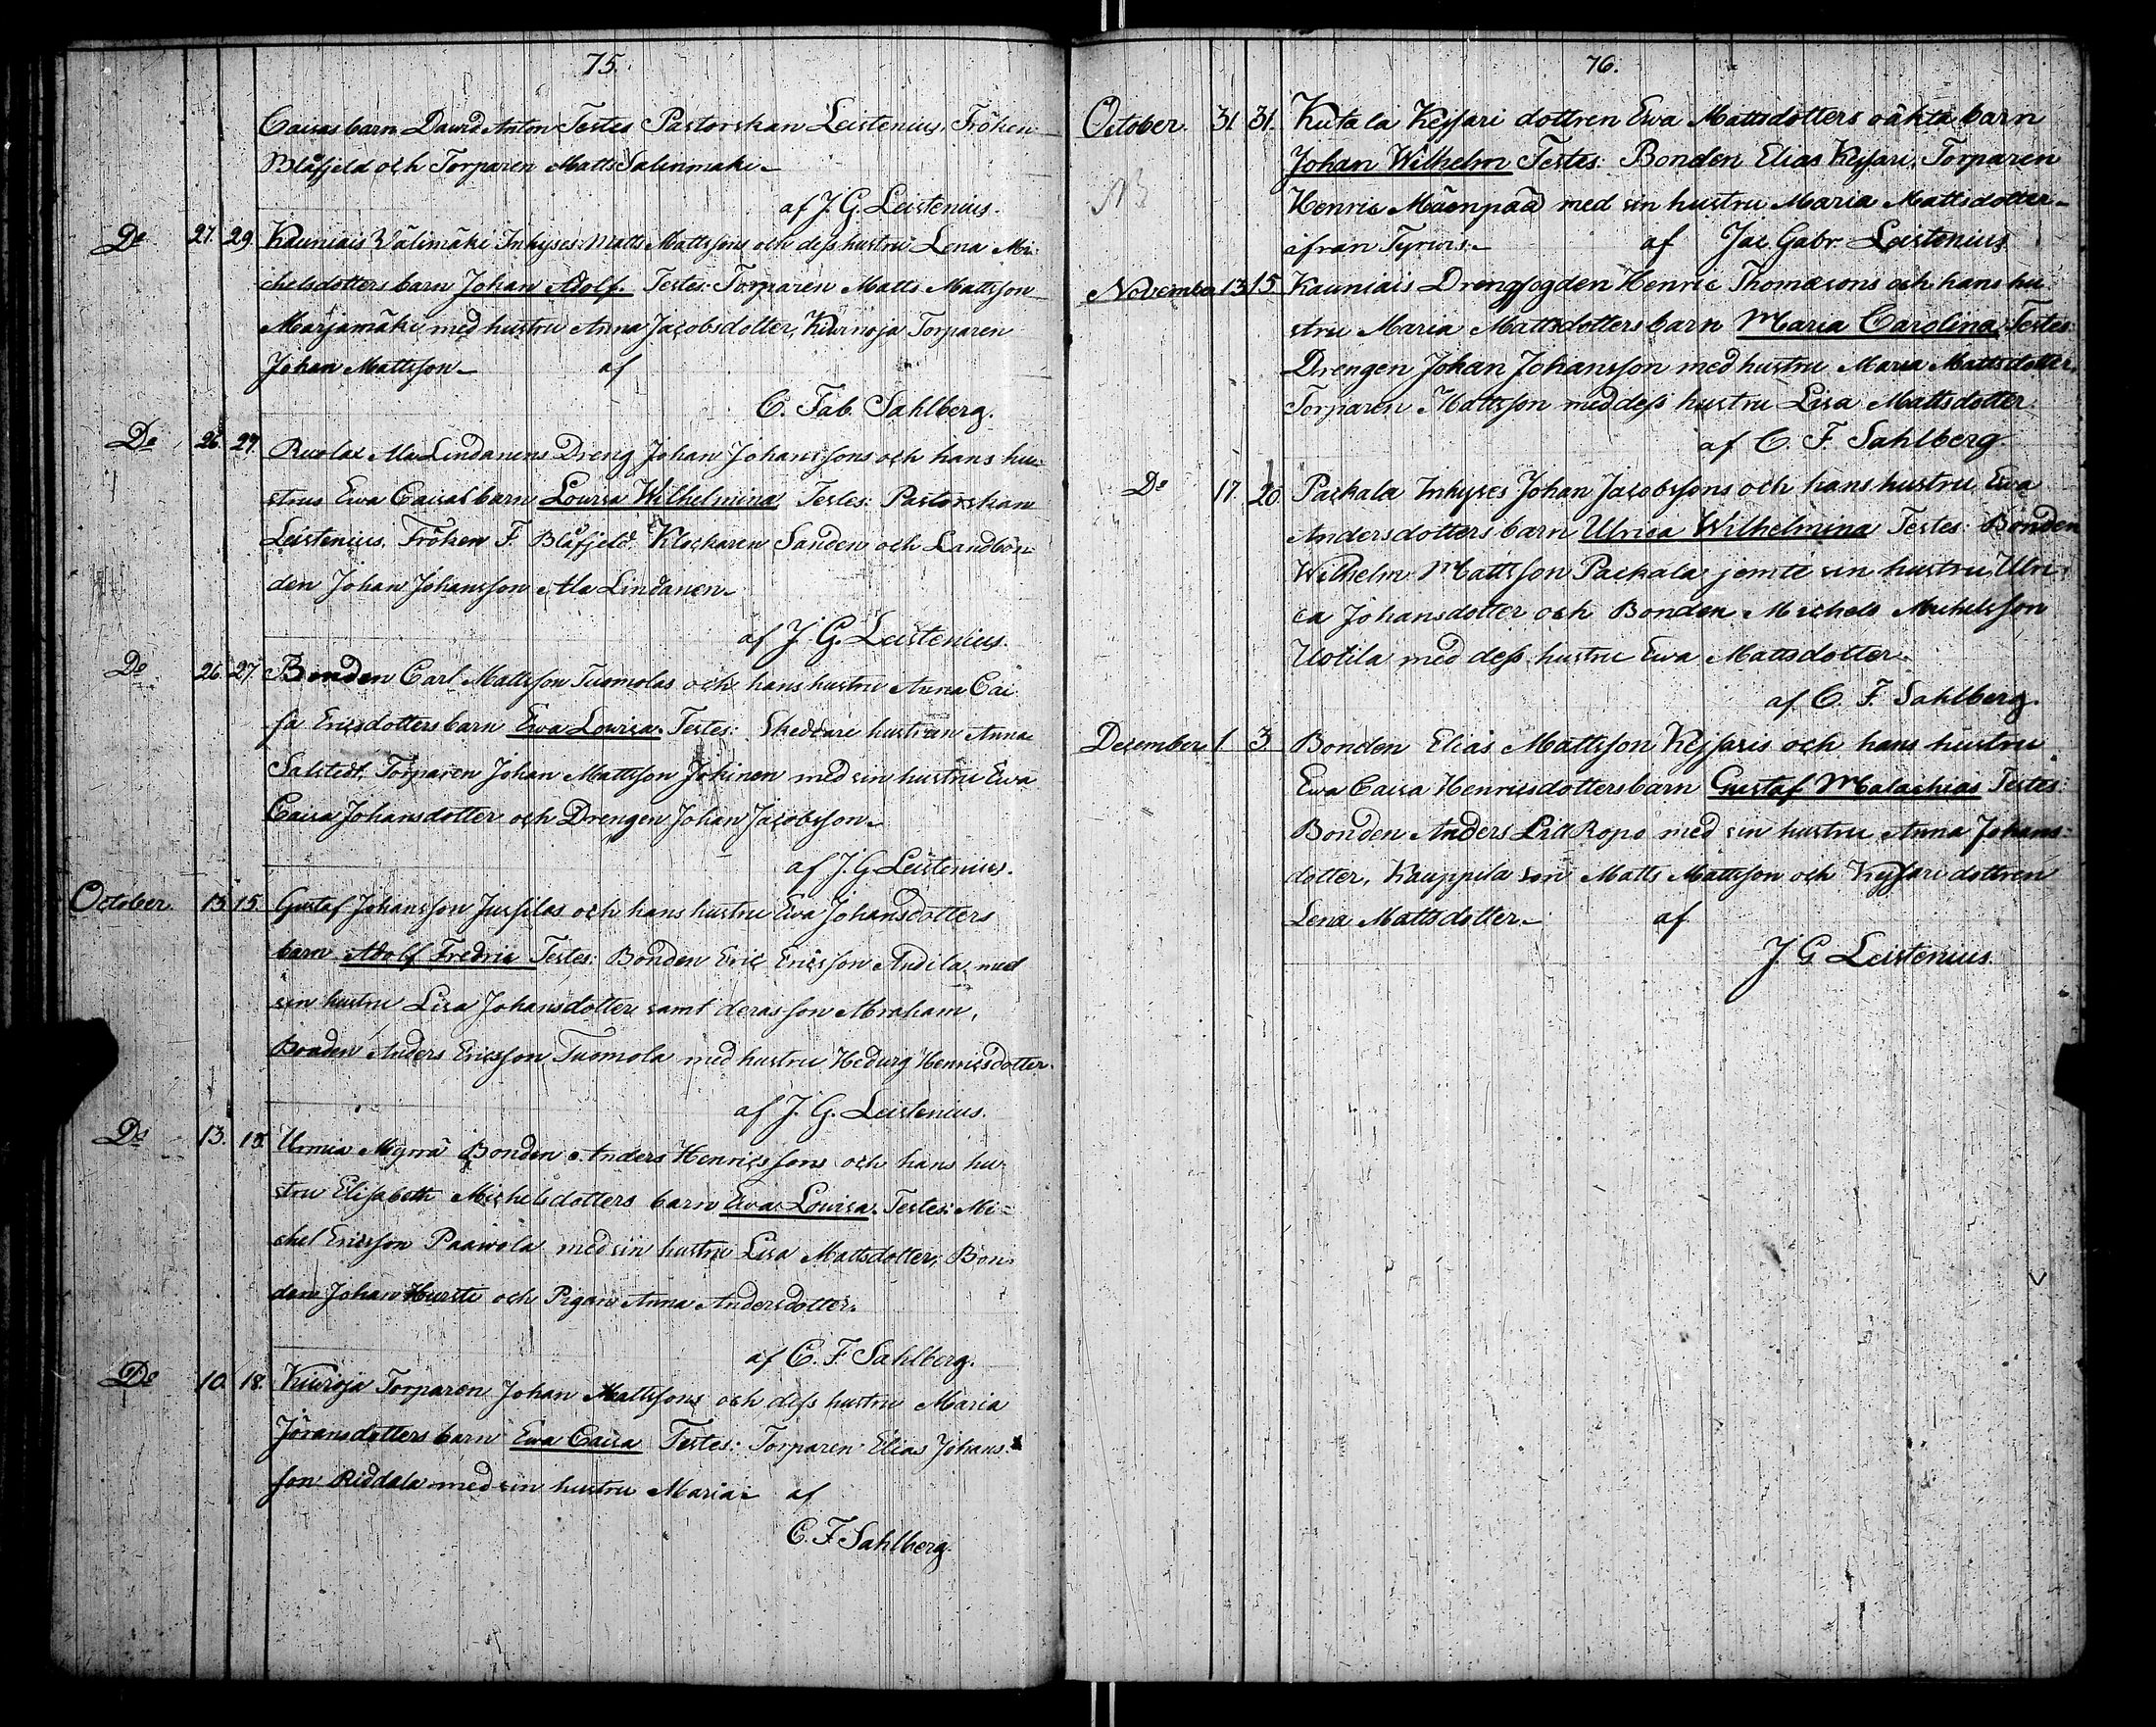 75.
Caisas barn David Anton Testes Pastorskan Leistenius, Fröken
Blåfjeld och Torparen Matts Salinmäki
af J. G. Leistenius.
Do 27. 29. Kauniais Välimäki Inhyses Matts Mattssons och dess hustru Lena Mi-
chelsdotters barn Johan Adolf. Testes: Torparen Matts Mattsson
Marjamäki med hustru Anna Jacobsdotter, Kiurnoja Torparen
Johan Mattsson af
C. Fab. Sahlberg.
Do 26. 27. Ruolax Ala Lindanens Dreng Johan Johanssons och hans hu-
strus Ewa Caisas barn Lovisa Wilhelmina Testes: Pastorskan
Leistenius, Fröken F. Blåfjeld, Klockaren Sanden och Landbon-
den Johan Johansson Ala Lindanen
af J. G. Leistenius.
Do 26. 27. Bonden Carl Mattsson Tuomolas och hans hustru Anna Cai
sa Ericsdotters barn Ewa Lovisa. Testes: hustrun Anna
Salstedt, Torparen Johan Mattsson Jokinen med sin hustru Ewa
Caisa Johansdotter och Drengen Johan Jacobsson
af J. G Leistenius.
October 13 15. Gustaf Johansson Jussilas och hans hustru Eva Johansdotters
barn Adolf Fredric Testes: Bonden Eric Ericsson Andila med
sin hustru Lisa Johansdotter samt deras son Abraham,
Bonden Anders Ericsson Tuomola med hustru Hedvig Henricsdotter.
af J. G. Leistenius.
Do 13. 15. Urmia Myrrä Bonden Anders Henricssons och hans hu-
stru Elisabeth Michelsdotters barn Ewa Lovisa. Testes: Mi-
chel Ericsson Paavola med sin hustru Lisa Mattsdotter, Bon-
den Johan Hursti och Pigan Anna Andersdotter.
af C. F. Sahlberg.
Do 10. 18. Kiuroja Torparen Johan Mattssons och dess hustru Maria
Jöransdotters barn Ewa Caisa Testes: Torparen Elias Johans-
son Riddala med sin hustru Maria af
C. F Sahlberg.
76.
October. 31 31. Kutala Keijsari dottren Ewa Mattsdotters oäkta barn
Johan Wilhelm Testes: Bonden Elias Keijsari, Torparen
NB Henric Mäenpää med sin hustru Maria Mattsdotter
ifrån Tyrvis af Jac. Gabr. Leistenius
November 13 15 Kauniais Drengfogden Henric Thomæsons och hans hu
stru Maria Mattsdotters barn Maria Carolina Testes:
Drengen Johan Johansson med hustru Maria Mattsdotter,
Torparen Mattsson med dess hustru Lisa Mattsdotter
af C. F. Sahlberg.
Do 17. 20. Packala Inhyses Johan Jacobssons och hans hustru Ewa
Andersdotters barn Ulrica Wilhelmina Testes: Bonden
Wilhelm Mattsson Packala jemte sin hustru Ulri
ca Johansdotter och Bonden Michels Michelsson
Uotila med dess hustru Ewa Mattsdotter.
af C. F. Sahlberg.
December 1. 3. Bonden Elias Mattsson Keijsaris och hans hustru
Ewa Caisa Henricsdotters barn Gustaf Malachias Testes:
Bonden Anders Lill Ropo med sin hustru Anna Johans-
dotter, Kauppila son Matts Mattsson och Keijsari dottren
Lena Mattsdotter. af
J. G Leistenius.